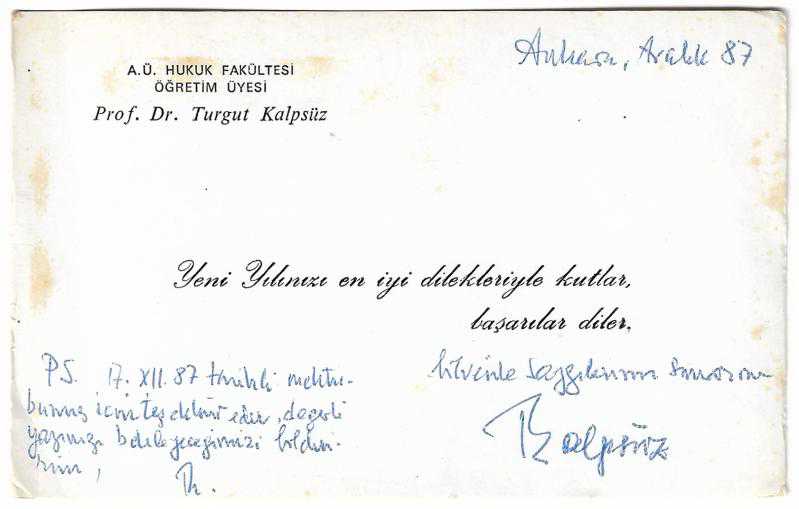 Ankara, Aralık 87
A.Ü. HUKUK FAKÜLTESİ
ÖĞRETİM ÜYESİ
Prof. Dr. Turgut Kalpsüz
Yeni Yılınızı en iyi dilekleriyle kutlar,
başarılar diler.
saygılarımı sunarım
TKalpsüz
P.S. 17.XII.87 tarihli mektu-
bunuz için teşekkür eder, değerli
yazınızı bekleyeceğimizi bildiri-
rim,
TK.